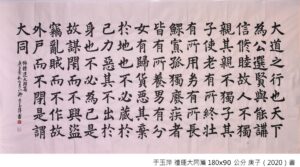 大道之行也天下
為公選賢與能講
信修睦故人不獨
親其親不獨子其
子使老有所終壯
有所用幼有所長
鰥寡孤獨廢疾者
皆有所養男有分
女有歸貨惡其棄
於地也不必藏於
己力惡其不出於
身也不必為己是
故謀閉而不興盜
竊亂賊而不作故
外戶而不閉是謂
大同
禮運大同篇
于玉萍 禮運大同篇 180x90 公分 庚子（2020）書